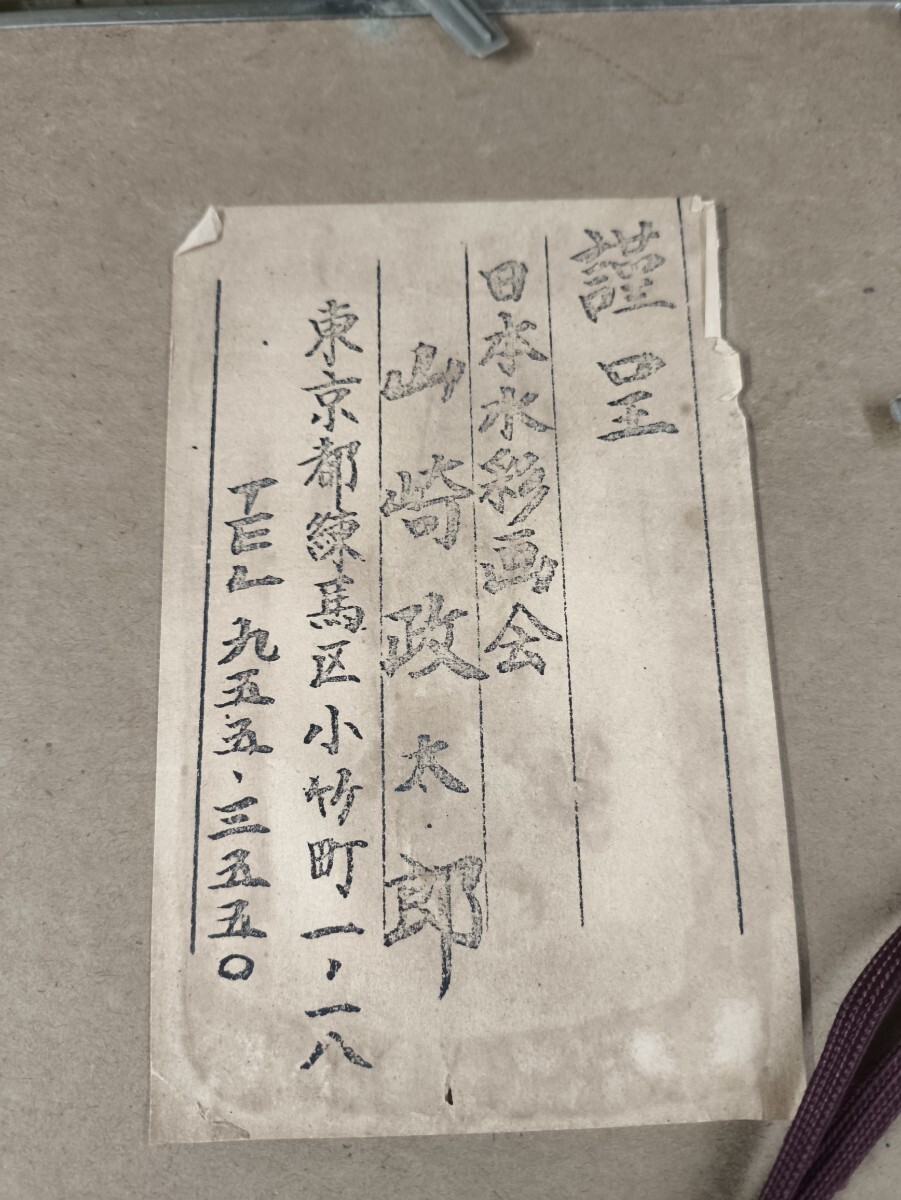 謹呈
日本水彩画会
山崎政太郎
東京都練馬区小竹町一ノ一八
TEL 九五五、三五五〇